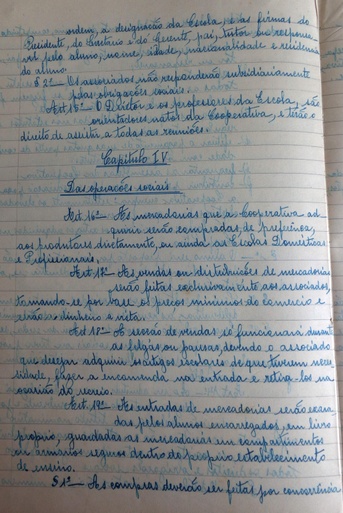 ordem, a designação da Escola, e as firmas do
Presidente, do Secretario e do Gerente, pai, tutor ou respon-
vel pelo aluno, nome, idade, nacionalidade e residencia
do aluno.
§ 2º — Os associados não responderão subsidiariamente
pelas obrigações sociais.
Art. 15º — O Diretor e os professores da Escola, são
orientadores natos da Cooperativa, e terão o
direito de assistir a todas as reuniões.
Capitulo IV
Das operações sociais
Art. 16º — As mercadorias que a Cooperativa ad-
quirir serão compradas, de preferencia,
aos produtores diretamente, ou ainda as Escolas Domesticas
e Profissionais.
Art. 17º — As vendas ou distribuições de mercadorias
serão feitas exclusivamente aos associados,
tomando-se por base os preços minimos do comercio e
serão a dinheiro á vista.
Art. 18º — A secção de vendas, só funcionará durante
as folgas ou pausas, devendo o associado
que desejar adquirir os artigos escolares de que tiverem neces-
sidade, fazer a encomenda na entrada e retira-los na
ocasião do recreio.
Art. 19º — As entradas de mercadorias serão
das pelos alunos encarregados, em livro
proprio, guardadas as mercadorias em compartimentos
ou armarios seguros dentro do proprio estabelecimento
de ensino.
§ 1º — As compras deverão ser feitas por concorrencia